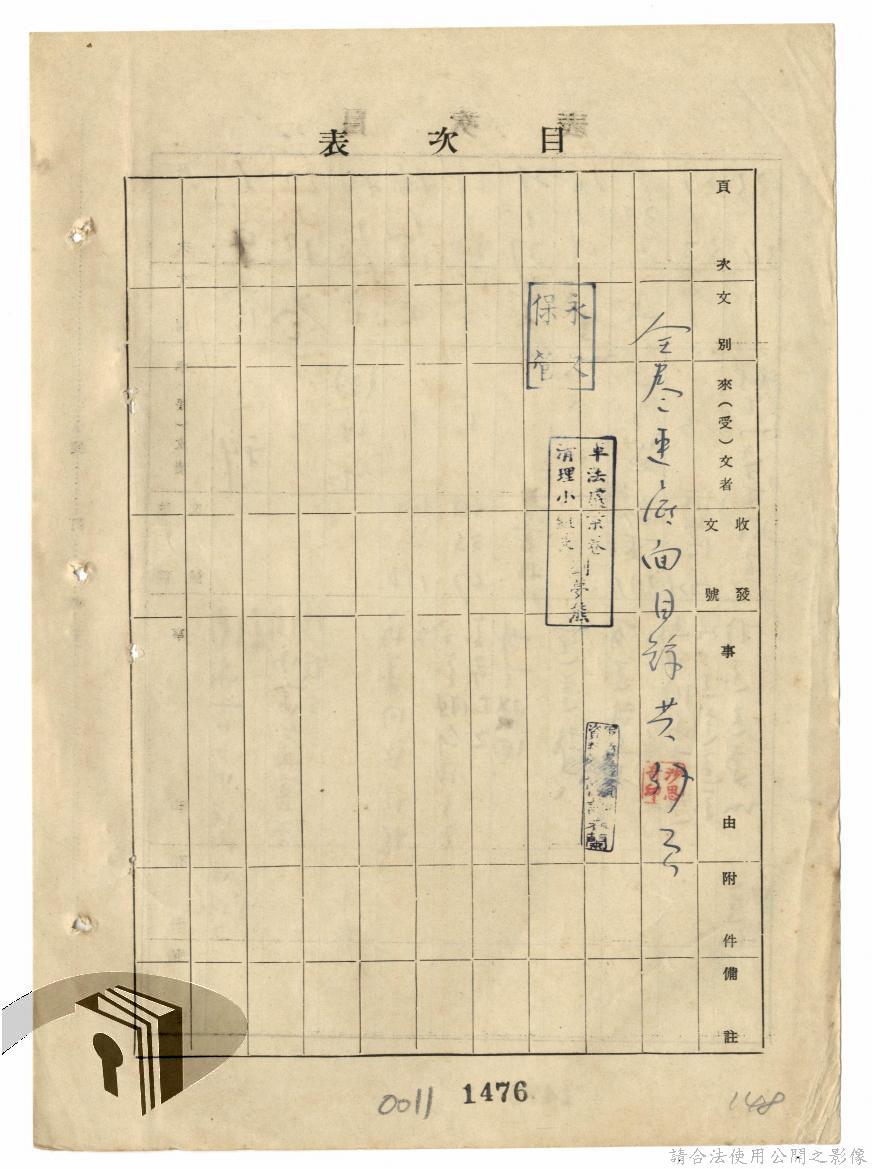 表次目
頁次
文別
來(受)文者
收發文號
事由
附件
備註
全卷連底面目錄共
永久
保管
軍法處宗卷
清理小組長劉夢熊
0011 1476
148
請合法使用公開之影像